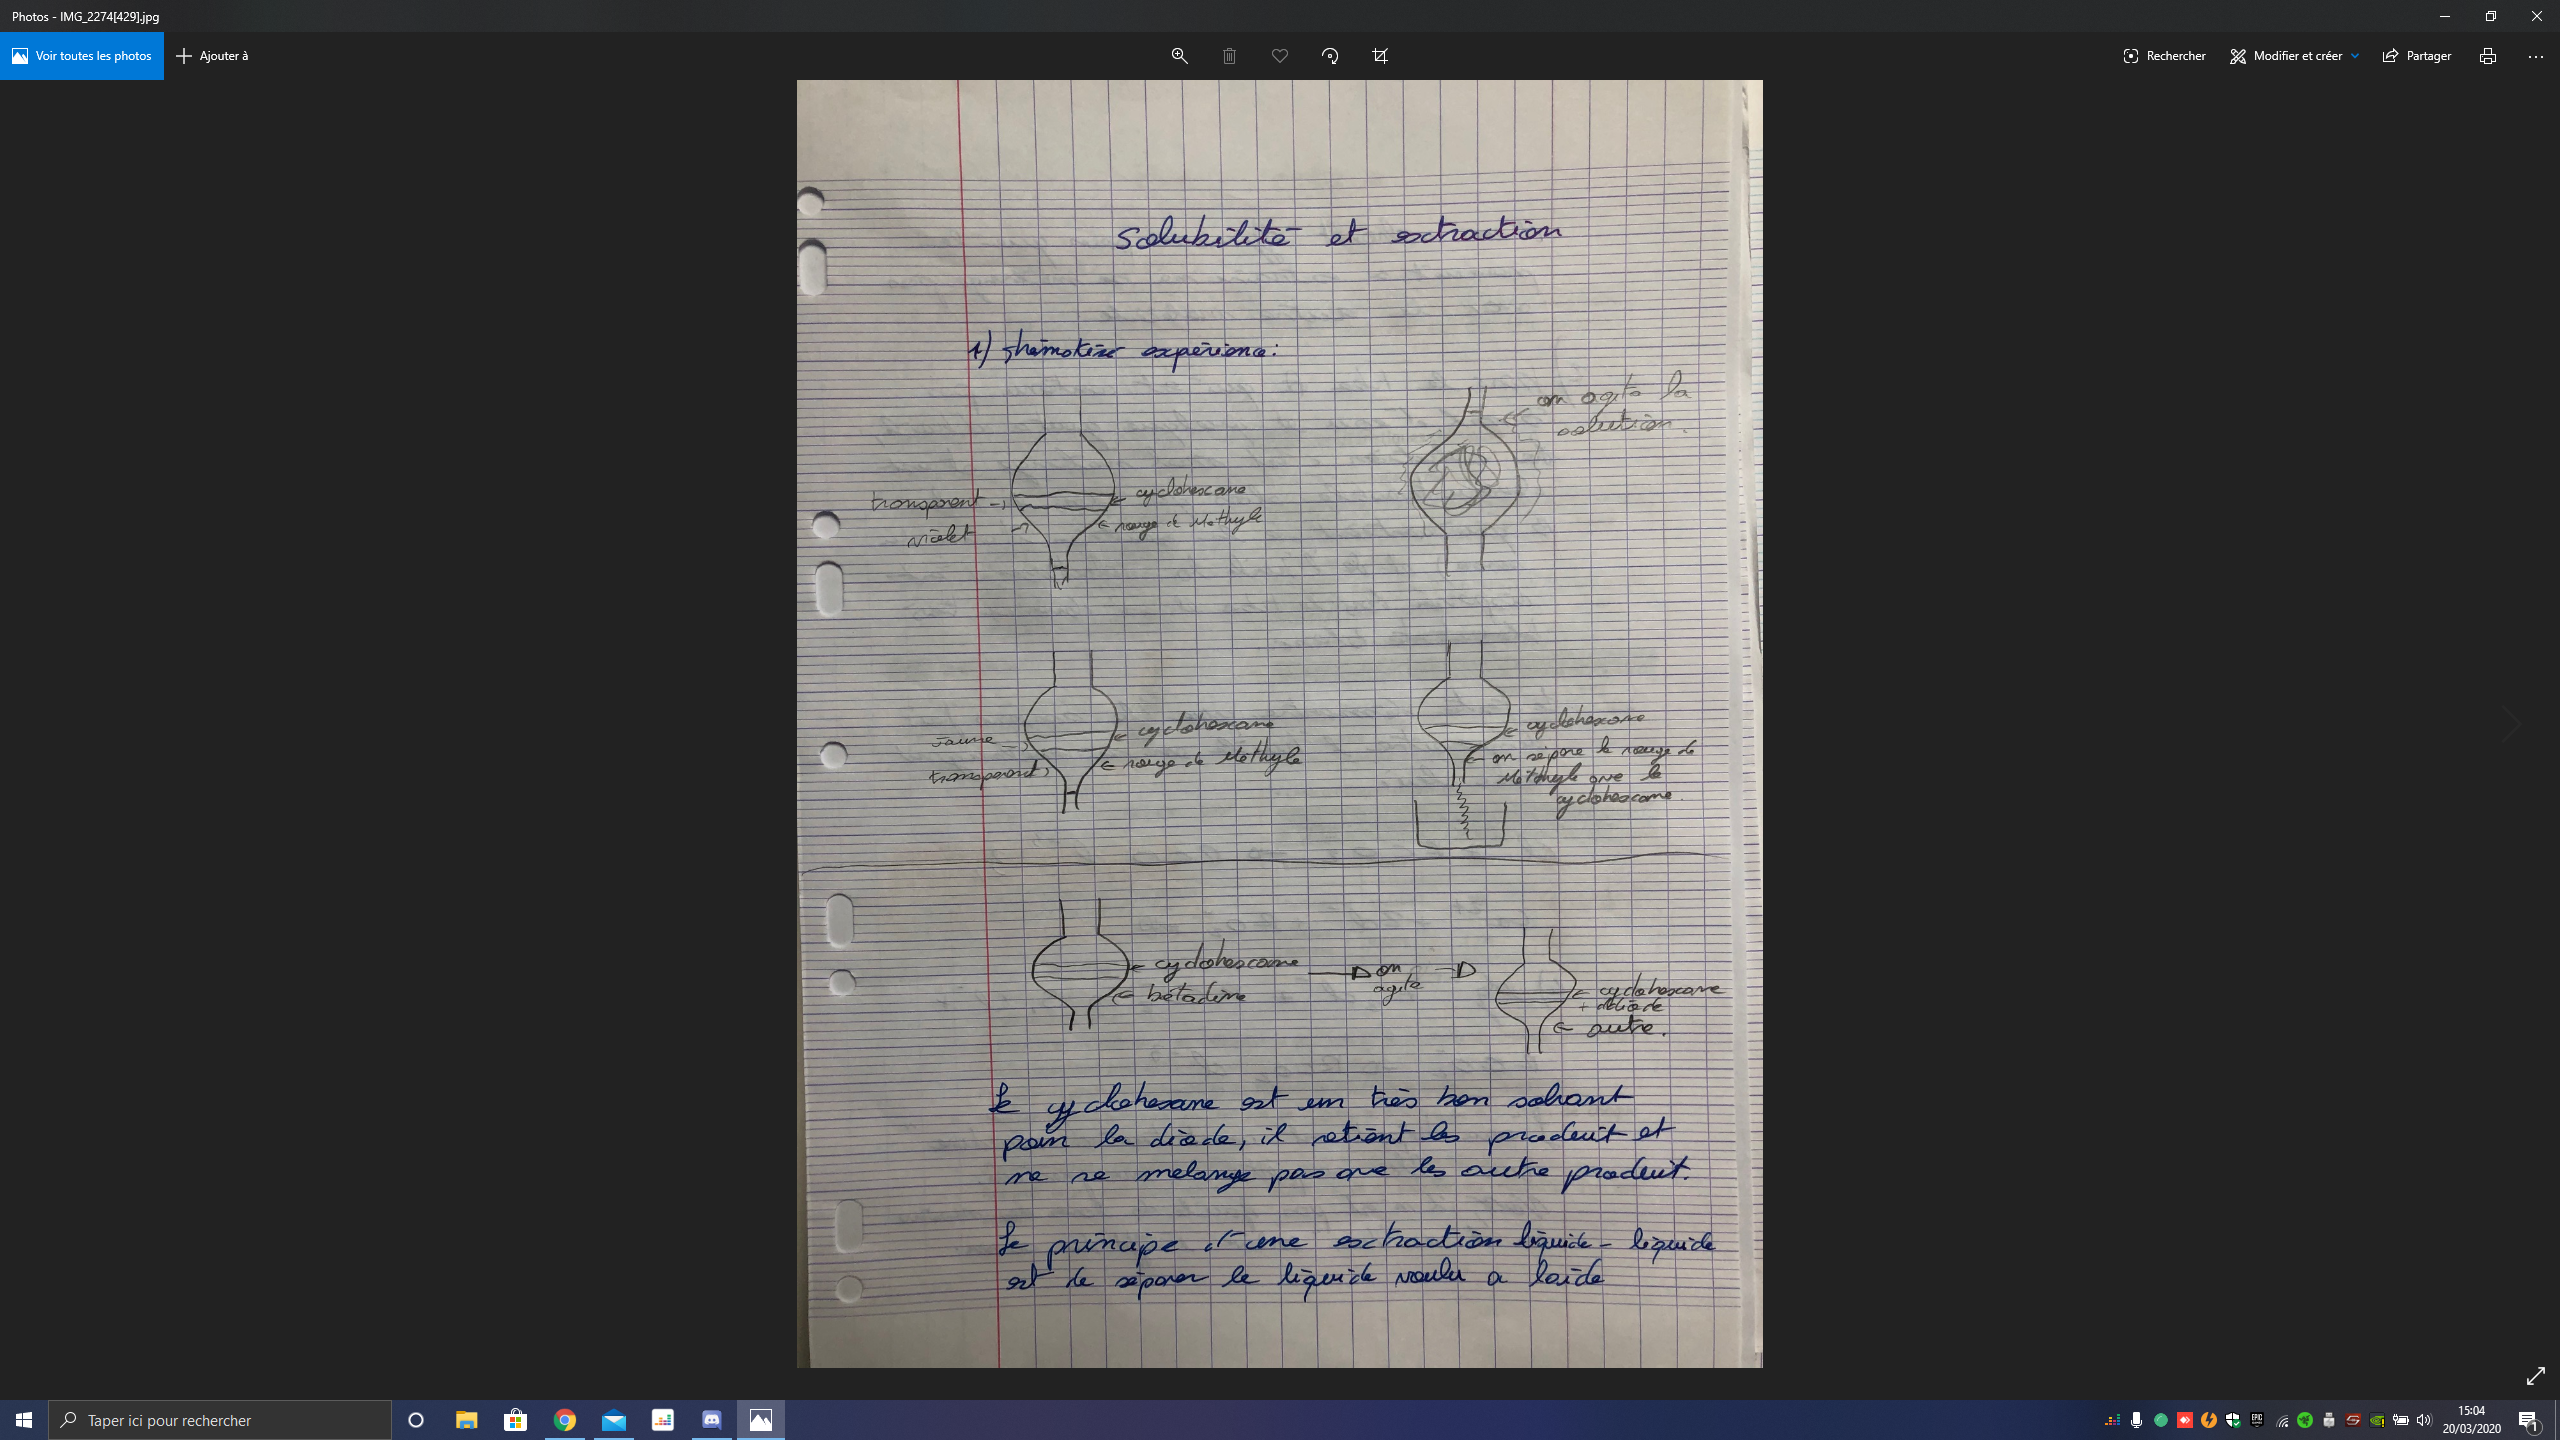 Photos - IMG_2274[429].jpg
Voir toutes les photos
Ajouter à
Rechercher
Modifier et créer
Partager
Solubilité et extraction
1) shématiser expérience:
on agite la
solution.
transparent
violet
cyclohexane
rouge de Méthyle
jaune
transparent
cyclohexane
rouge de Méthyle
cyclohexane
on sépare le rouge de
Méthyle ave le
cyclohexane.
cyclohexane
bétadine
on
agite
cyclohexane
+ diiode
autre.
Le cyclohexane est un très bon solvant
pour la diode, il retient les produit et
ne se mélange pas ave les autre produit.
Le principe d'une extraction liquide - liquide
est de séparer le liquide voulu a laide
Taper ici pour rechercher
15:04
20/03/2020
1